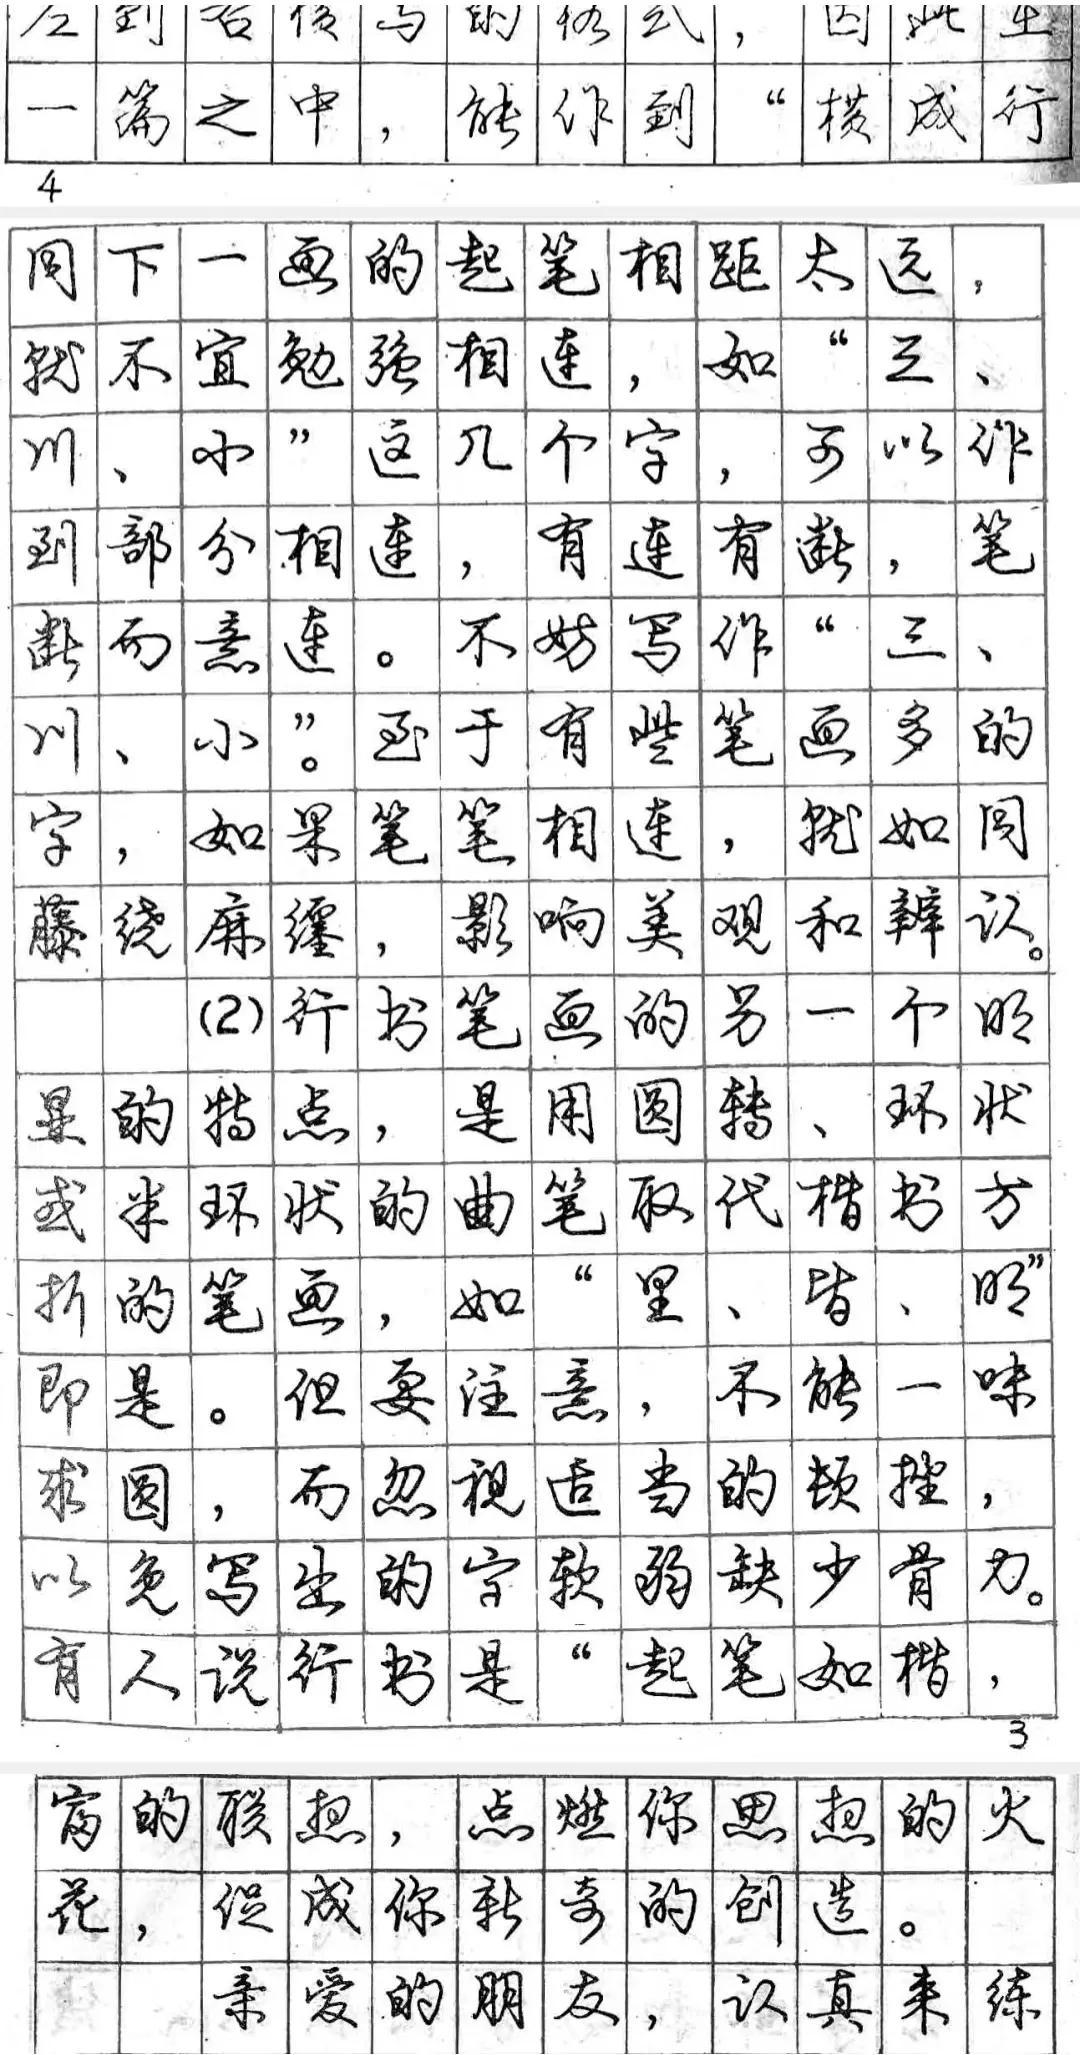 左到右横写的格式，因此在
一篇之中，能作到“横成行
4
同下一画的起笔相距太远，
就不宜勉强相连，如“三、
川、小”这几个字，可以作
到部分相连，有连有断，笔
断而意连。不妨写作“三、
川、小”。至于有些笔画多的
字，如果笔笔相连，就如同
藤绕麻缠，影响美观和辨认。
(2)行书笔画的另一个明
显的特点，是用圆转、环状
或半环状的曲笔取代楷书方
折的笔画，如“里、皆、明”
即是。但要注意，不能一味
求圆，而忽视适当的顿挫，
以免写出的字软弱缺少骨力。
有人说行书是“起笔如楷，
3
富的联想，点燃你思想的火
花，促成你新奇的创造。
亲爱的朋友，认真来练